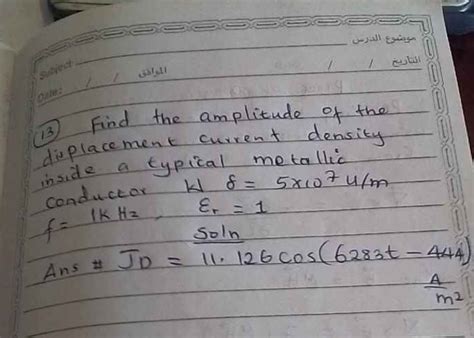 موضوع الدرس
Subject: الموافق / /
التاريخ / /
Date: / /
13) Find the amplitude of the
displacement current density
inside a typical metallic
conductor δ = 5x10⁷ ʊ/m
f = 1KHz, εᵣ = 1
Soln
Ans # J_D = 11.126 cos(6283t - 444)
A/m²